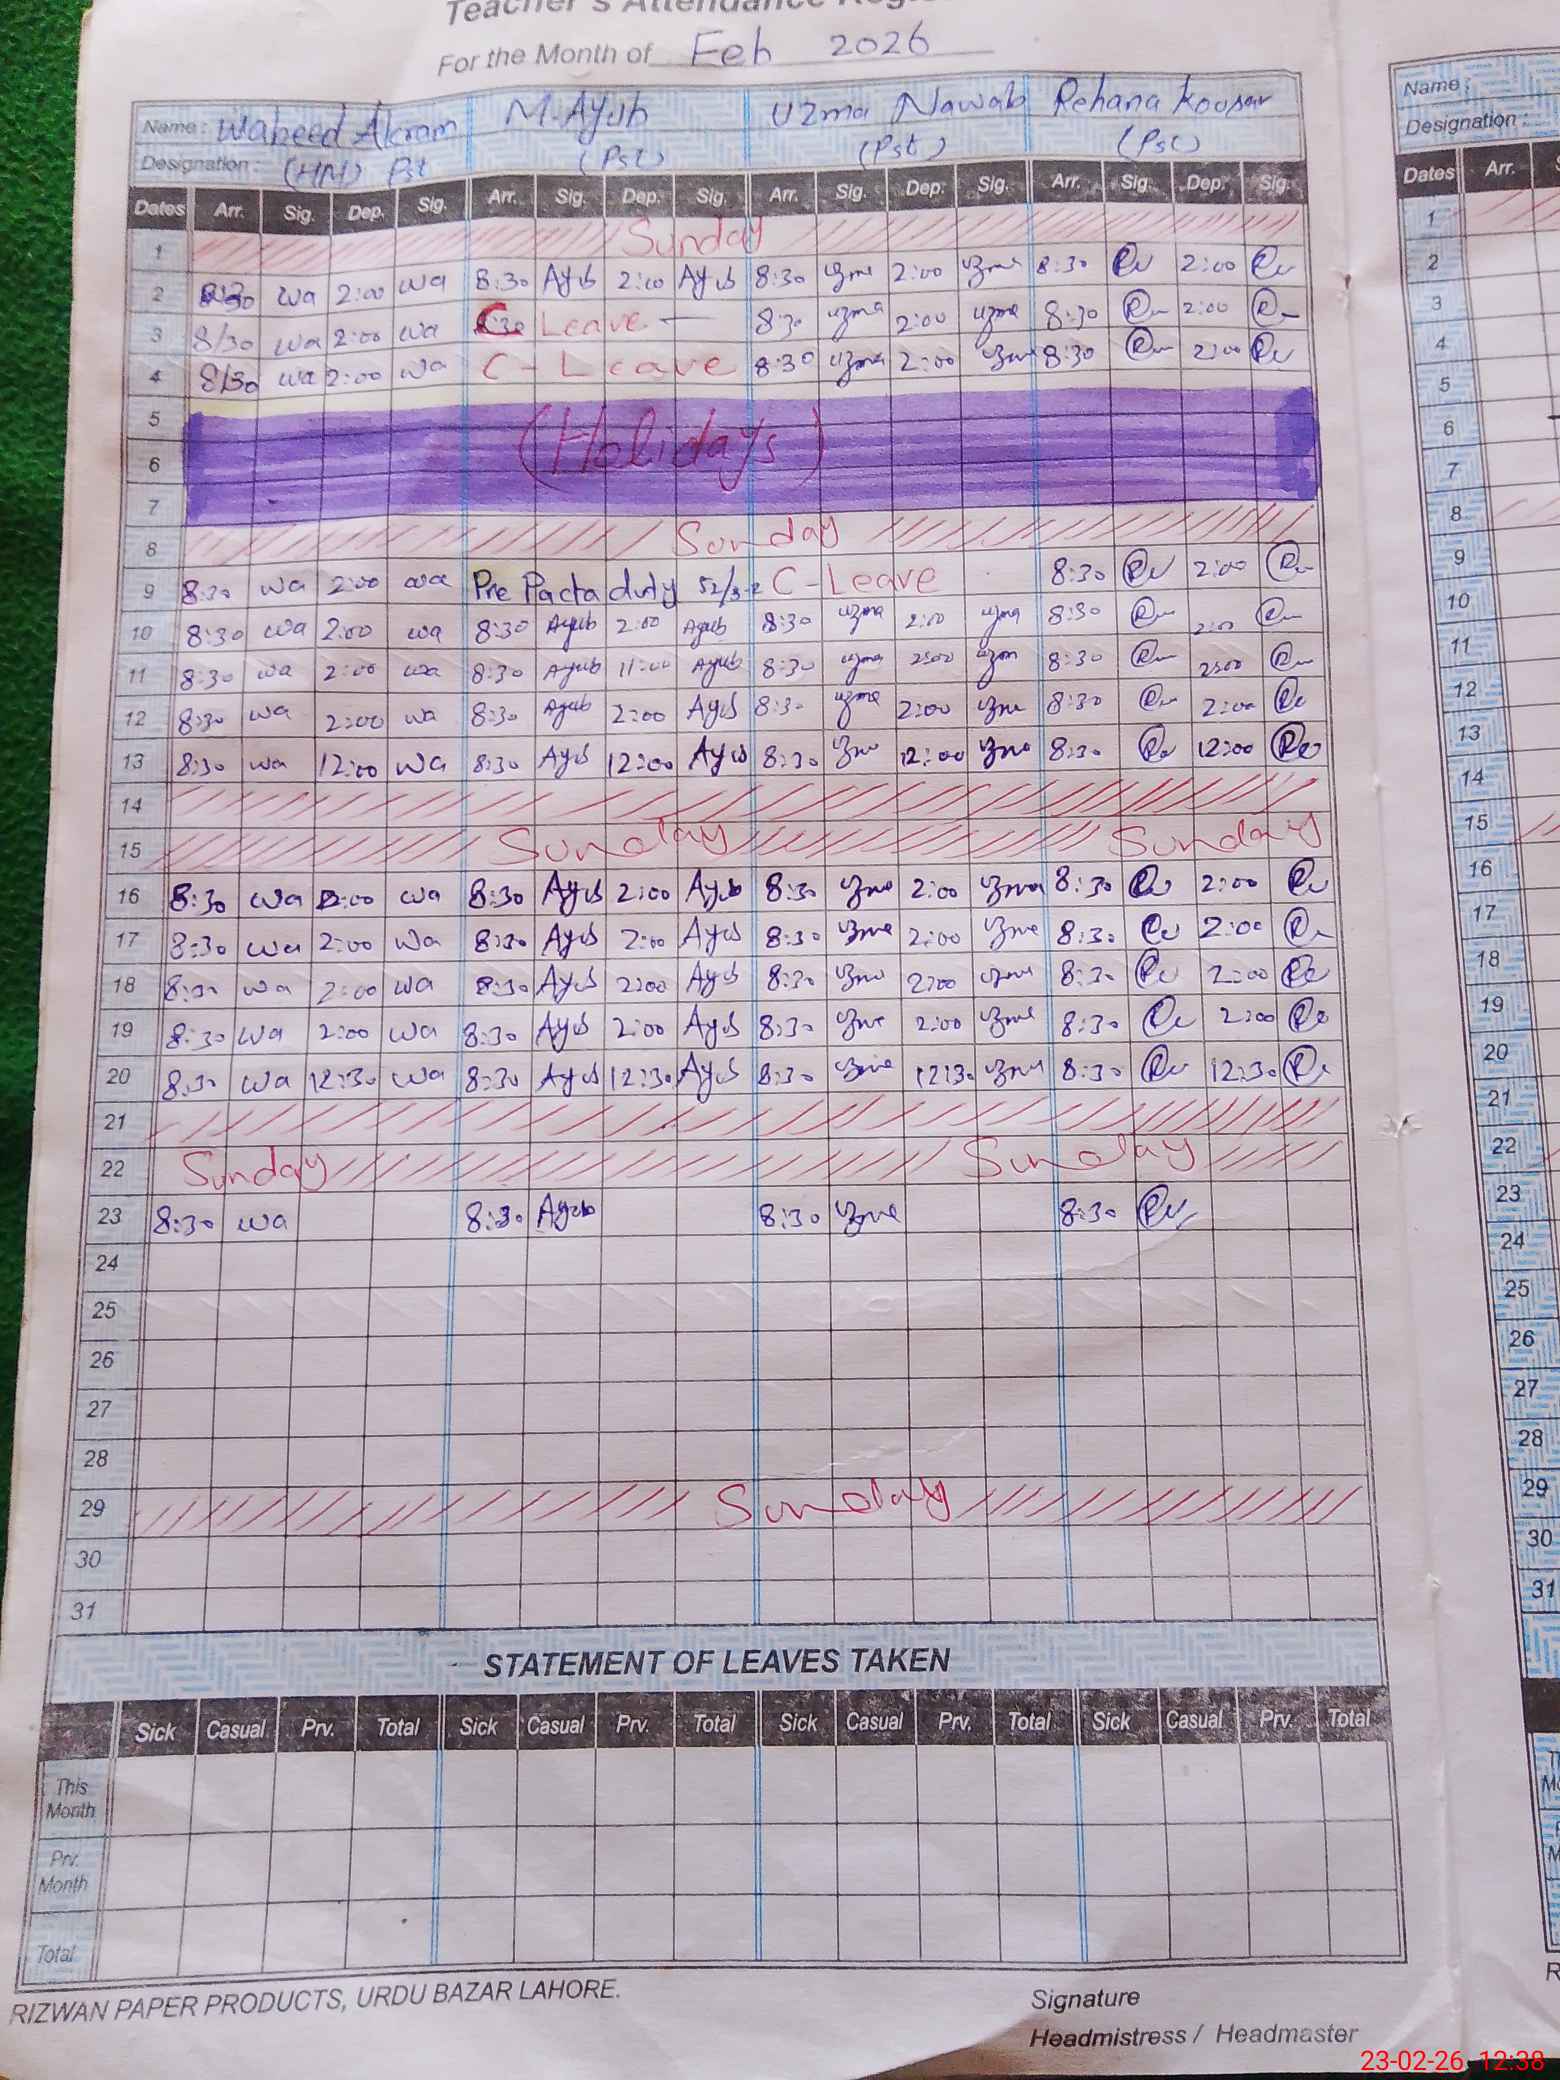 Teacher's Attendance Regi
For the Month of Feb 2026
Name: Waheed Akram M. Ayub Uzma Nawab Rehana Kousar
Designation: (HM) Pst (Pst) (Pst) (Pst)
Dates Arr. Sig. Dep. Sig. Arr. Sig. Dep. Sig. Arr. Sig. Dep. Sig. Arr. Sig. Dep. Sig.
1 Sunday
2 8:30 wa 2:00 wa 8:30 Ayub 2:00 Ayub 8:30 uzma 2:00 uzma 8:30 2:00
3 8/30 wa 2:00 wa C Leave — 8:30 uzma 2:00 uzma 8:30 2:00
4 8/30 wa 2:00 wa C - Leave 8:30 uzma 2:00 uzma 8:30 2:00
5
6 (Holidays)
7
8 Sunday
9 8:30 wa 2:00 wa Pre Pacta duty C-Leave 8:30 2:00
10 8:30 wa 2:00 wa 8:30 Ayub 2:00 Ayub 8:30 uzma 2:00 uzma 8:30 2:00
11 8:30 wa 2:00 wa 8:30 Ayub 11:00 Ayub 8:30 uzma 2:00 uzma 8:30 2:00
12 8:30 wa 2:00 wa 8:30 Ayub 2:00 Ayub 8:30 uzma 2:00 uzma 8:30 2:00
13 8:30 wa 12:00 wa 8:30 Ayub 12:00 Ayub 8:30 uzma 12:00 uzma 8:30 12:00
14
15 Sunday Sunday
16 8:30 wa 2:00 wa 8:30 Ayub 2:00 Ayub 8:30 uzma 2:00 uzma 8:30 2:00
17 8:30 wa 2:00 wa 8:30 Ayub 2:00 Ayub 8:30 uzma 2:00 uzma 8:30 2:00
18 8:30 wa 2:00 wa 8:30 Ayub 2:00 Ayub 8:30 uzma 2:00 uzma 8:30 2:00
19 8:30 wa 2:00 wa 8:30 Ayub 2:00 Ayub 8:30 uzma 2:00 uzma 8:30 2:00
20 8:30 wa 12:30 wa 8:30 Ayub 12:30 Ayub 8:30 uzma 12:30 uzma 8:30 12:30
21
22 Sunday Sunday
23 8:30 wa 8:30 Ayub 8:30 uzma 8:30
24
25
26
27
28
29 Sunday
30
31
STATEMENT OF LEAVES TAKEN
Sick Casual Prv. Total Sick Casual Prv. Total Sick Casual Prv. Total Sick Casual Prv. Total
This
Month
Prv.
Month
Total
RIZWAN PAPER PRODUCTS, URDU BAZAR LAHORE.
Signature
Headmistress / Headmaster
Name:
Designation:
Dates Arr.
1
2
3
4
5
6
7
8
9
10
11
12
13
14
15
16
17
18
19
20
21
22
23
24
25
26
27
28
29
30
31
23-02-26 12:38